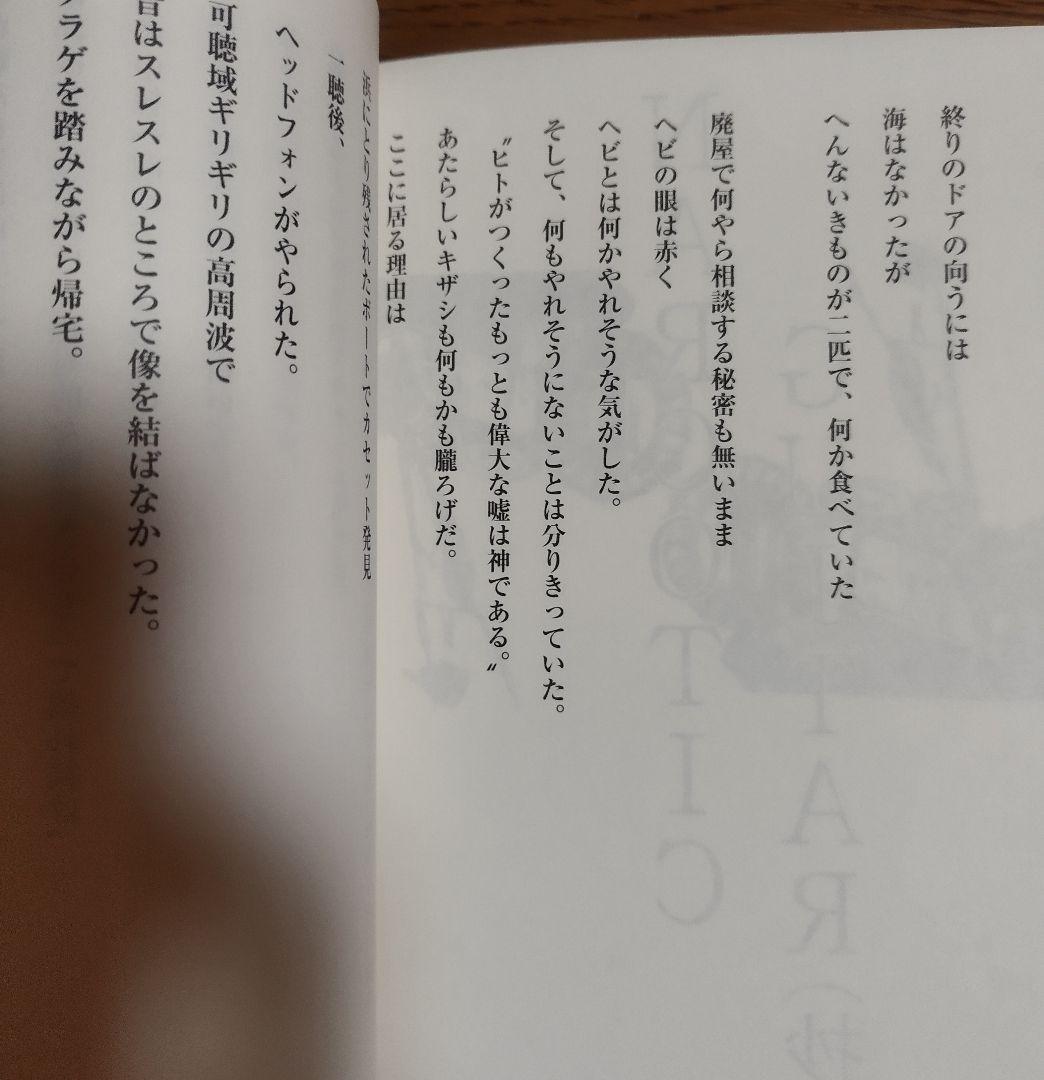 終りのドアの向うには
海はなかったが
へんないきものが二匹で、何か食べていた
廃屋で何やら相談する秘密も無いまま
ヘビの眼は赤く
ヘビとは何かやれそうな気がした。
そして、何もやれそうにないことは分りきっていた。
〝ヒトがつくったもっとも偉大な嘘は神である。〟
あたらしいキザシも何もかも朧ろげだ。
ここに居る理由は
浜にとり残されたボートでカセット発見
一聴後、
ヘッドフォンがやられた。
可聴域ギリギリの高周波で
音はスレスレのところで像を結ばなかった。
クラゲを踏みながら帰宅。